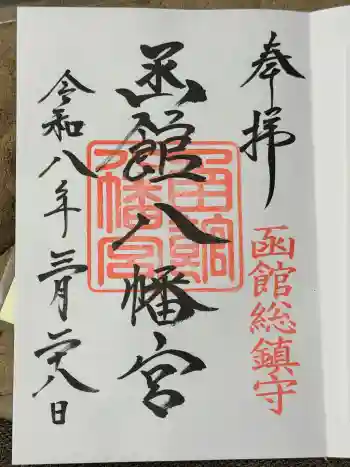 奉拝
函館総鎮守
函館八幡宮
函館八幡宮
令和八年三月二十八日